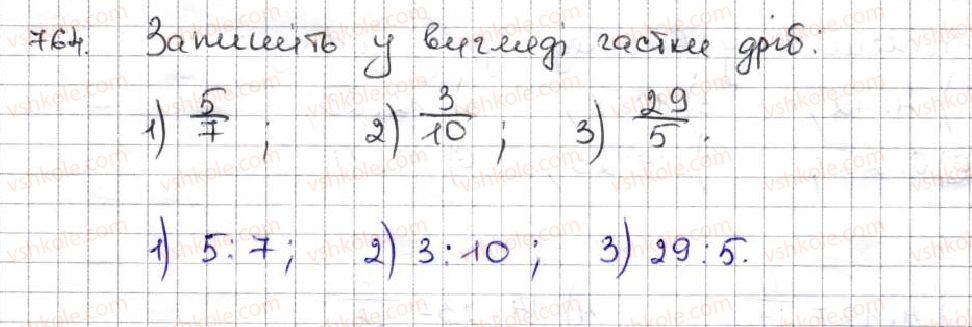 764. Запишіть у вигляді частки дріб:
1) 5/7 ; 2) 3/10 ; 3) 29/5 .
1) 5 : 7 ; 2) 3 : 10 ; 3) 29 : 5.